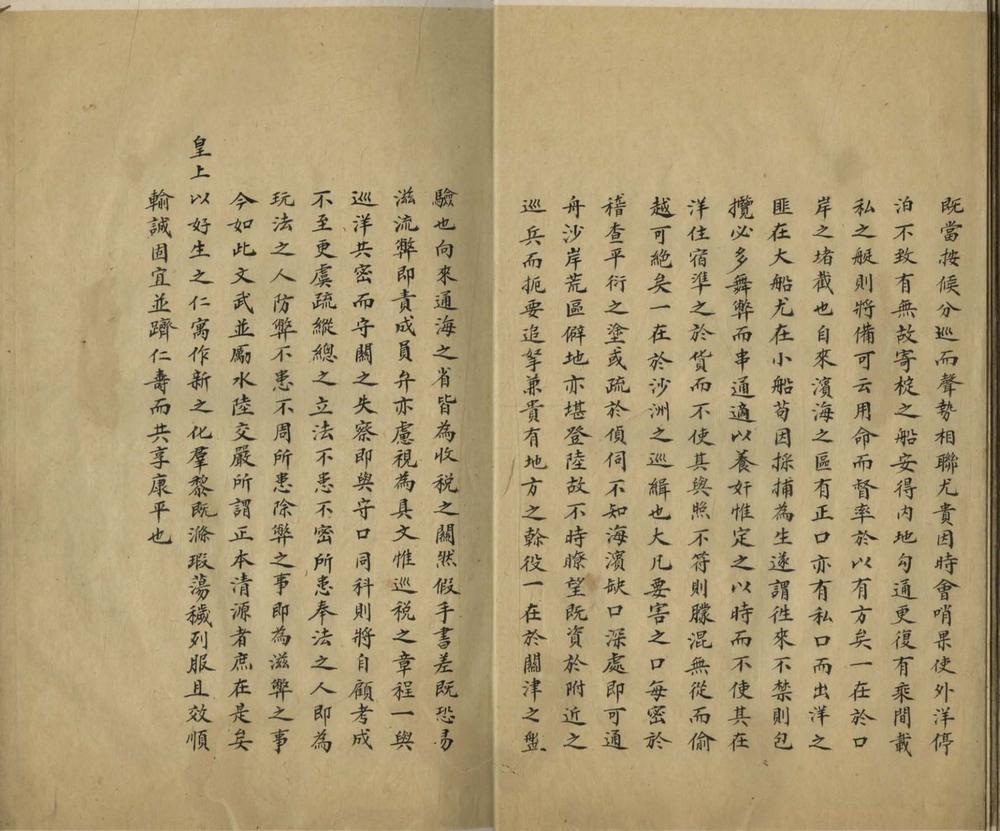 既當按候分巡而聲勢相聯尤貴因時會哨果使外洋停
泊不致有無故寄椗之船安得内地勾通更復有乘間載
私之艇則將備可云用命而督率於以有方矣一在於口
岸之堵截也自來濱海之區有正口亦有私口而出洋之
匪在大船尤在小船苟因採捕為生遂謂徃來不禁則包
攬必多舞弊而串通適以養奸惟定之以時而不使其在
洋住宿準之於貨而不使其與照不符則朦混無從而偷
越可絶矣一在於沙洲之巡緝也大凡要害之口每密於
稽查平衍之塗或疏於偵伺不知海濱缺口深處即可通
舟沙岸荒區僻地亦堪登陸故不時瞭望既資於附近之
巡兵而扼要追拏兼貴有地方之幹役一在於關津之盤
驗也向來通海之省皆為收税之關然假手書差既恐易
滋流弊即責成員弁亦慮視為具文惟巡税之章程一與
巡洋共密而守關之失察即與守口同科則將自顧考成
不至更虞疏縱總之立法不患不密所患奉法之人即為
玩法之人防弊不患不周所患除弊之事即為滋弊之事
今如此文武並勵水陸交嚴所謂正本清源者庶在是矣
皇上以好生之仁寓作新之化羣黎既滌瑕蕩穢列服且效順
輸誠固宜並躋仁壽而共享康平也